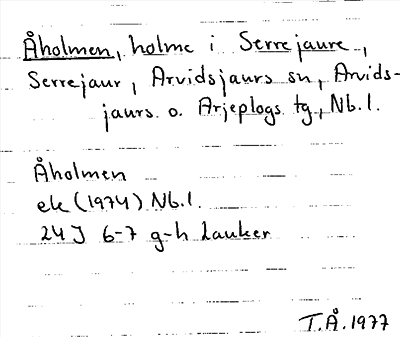 Åholmen, holme i Serrejaure,
Serrejaur, Arvidsjaurs sn, Arvids-
jaurs o. Arjeplogs tg., Nb.l.
Åholmen
ek (1974) Nb.l.
24J 6-7 g-h Lauker
T.Å. 1977